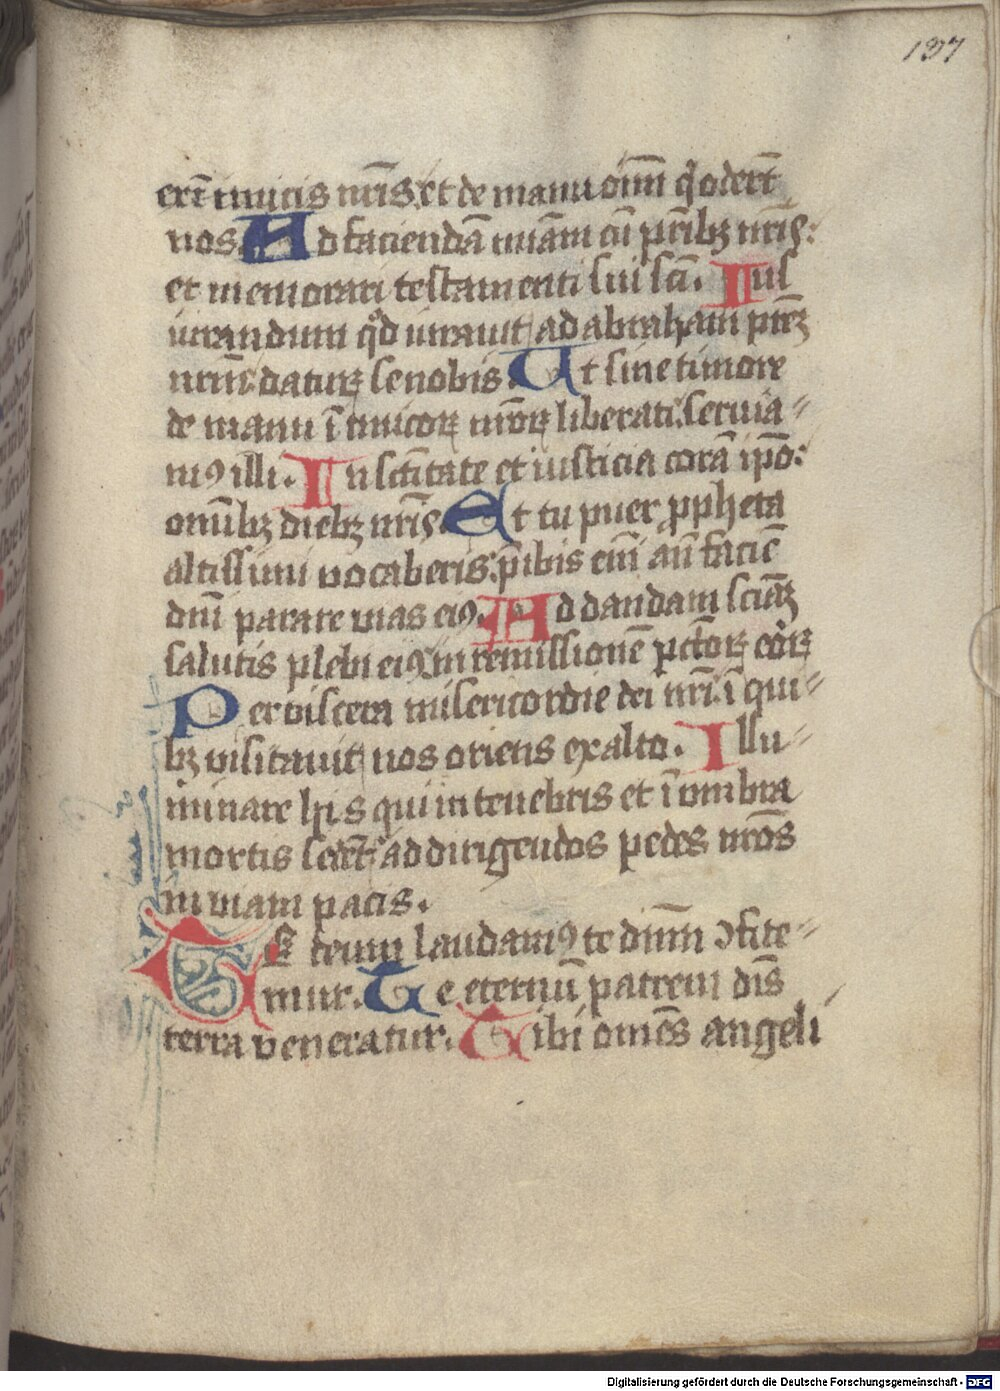 137
exēt inuicis nr̄is. et de manu oīm q̄ odert̄
nos. Ad faciendā mīam cū pr̄ibꝫ nr̄is:
et memorari testamenti sui sc̄i. Ius
iurandum qd̓ iurauit ad abraham prēꝫ
nrm̄: daturꝫ se nobis. Ut sine timore
de manu īimicoꝝ nr̄oꝝ liberati: seruia-
mꝰ illi. In sctītate et iusticia corā ip̄o:
omībꝫ diebꝫ nr̄is. Et tu puer ꝓpheta
altissimi vocaberis: p̄ibis em̄ an̄ faciē
dn̄i parare vias eiꝰ. Ad dandam sciāꝫ
salutis plebi eiꝰ: in remissionē pctōꝝ eoꝝ
Per viscera misericordie dei nr̄i: ī qui-
bꝫ visitauit nos oriēs ex alto. Illu-
minare his qui in tenebris et ī vmbra
mortis sedēt: ad dirigendos pedes nr̄os
in viam pacis.
Te deum laudamꝰ te dn̄m ꝯfite-
mur. Te eternū patrem ōis
terra veneratur. Tibi omēs angeli
Digitalisierung gefördert durch die Deutsche Forschungsgemeinschaft - DFG